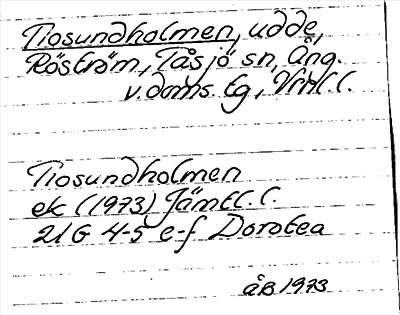 Tiosundholmen, udde,
Röström, Tåsjö sn, Ång.
v.doms. tg, Vrnl. l.
Tiosundholmen
ek (1973) Jämtl. l.
21G 4-5 e-f Dorotea
ÅB 1973